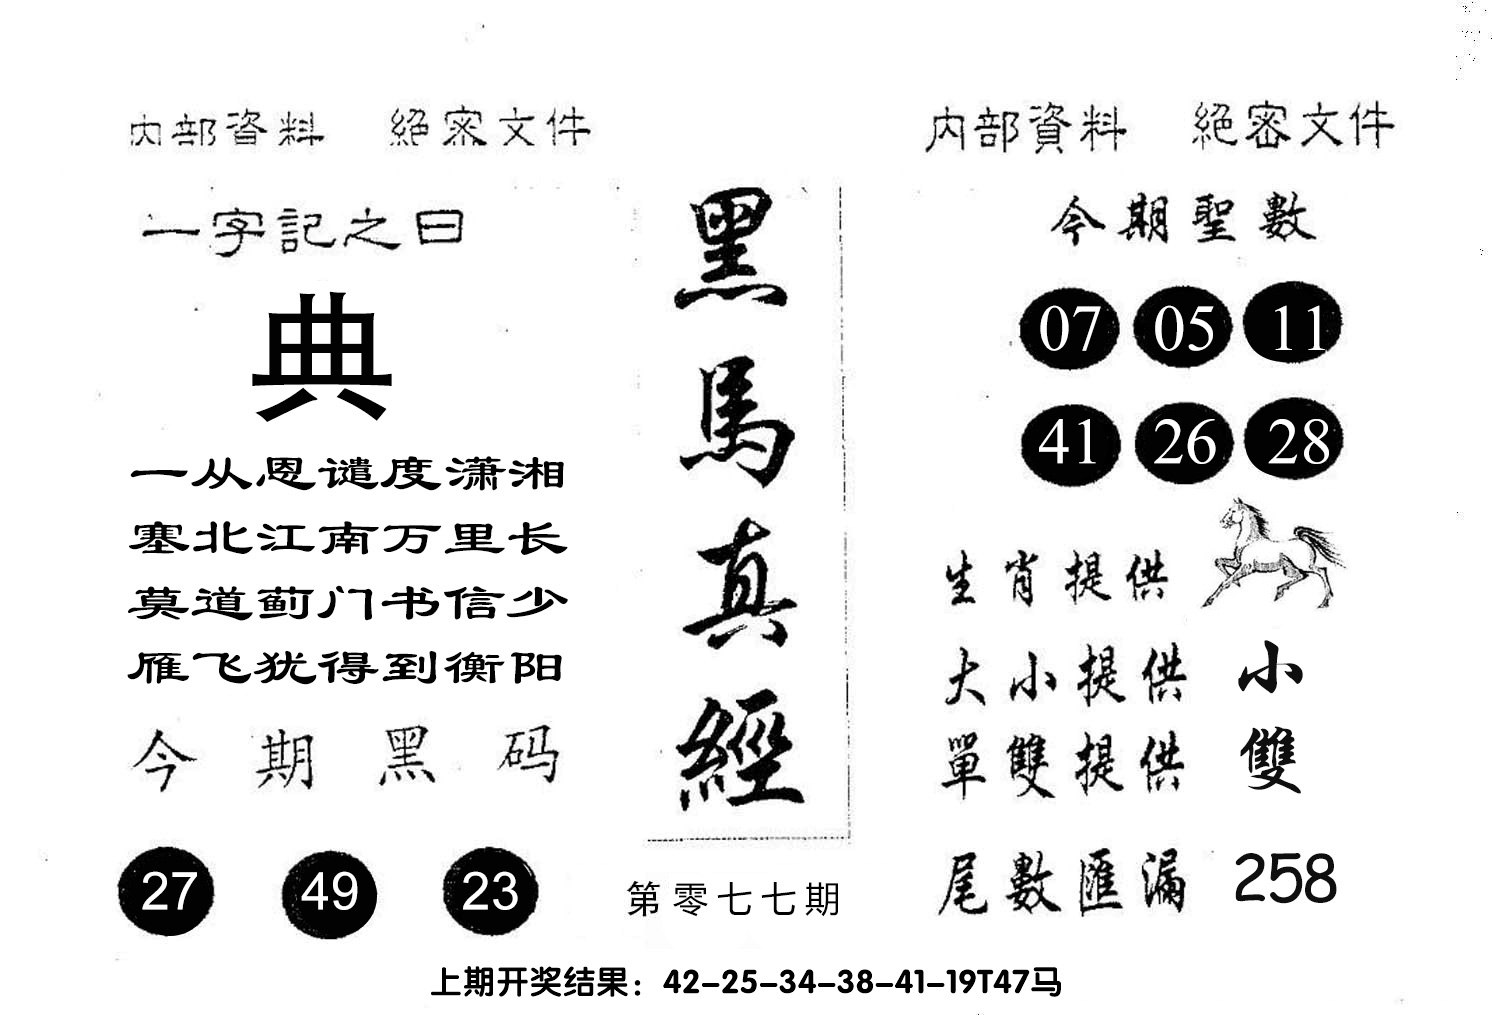 内部資料 絕密文件
一字記之曰
典
一从恩谴度潇湘
塞北江南万里长
莫道蓟门书信少
雁飞犹得到衡阳
今期黑码
27 49 23
黑馬真經
第零七七期
内部資料 絕密文件
今期聖數
07 05 11
41 26 28
生肖提供
大小提供 小
單雙提供 雙
尾數匯漏 258
上期开奖结果：42-25-34-38-41-19T47马